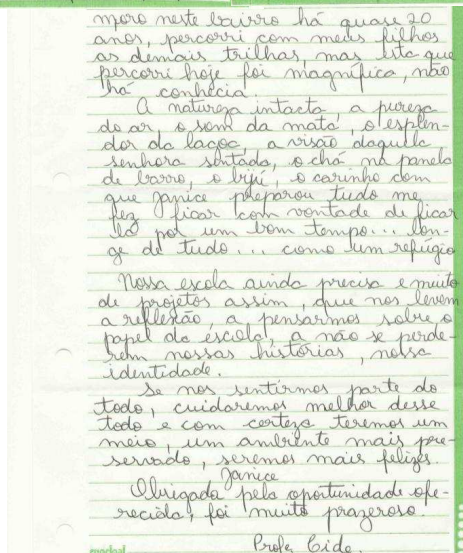 moro neste bairro há quase 20
anos, percorri com meus filhos
as demais trilhas, mas esta que
percorri hoje foi magnífica, não
há conhecia.
A natureza intacta, a pureza
do ar o som da mata, o esplen-
dor da lagoa, a visão daquela
senhora sentada, o chá na panela
de barro, o bijú, o carinho com
que Janice preparou tudo me
fez ficar com vontade de ficar
lá por um bom tempo... lon-
ge de tudo... como um refúgio
Nossa escola ainda precisa e muito
de projetos assim, que nos levem
a reflexão, a pensarmos sobre o
papel da escola, a não se perde-
rem nossas histórias, nossa
identidade.
Se nos sentirmos parte do
todo, cuidaremos melhor desse
todo e com certeza teremos um
meio, um ambiente mais pre-
servado, seremos mais felizes.
Janice
Obrigada pela oportunidade ofe-
recida, foi muito prazeroso.
Profa Cide.